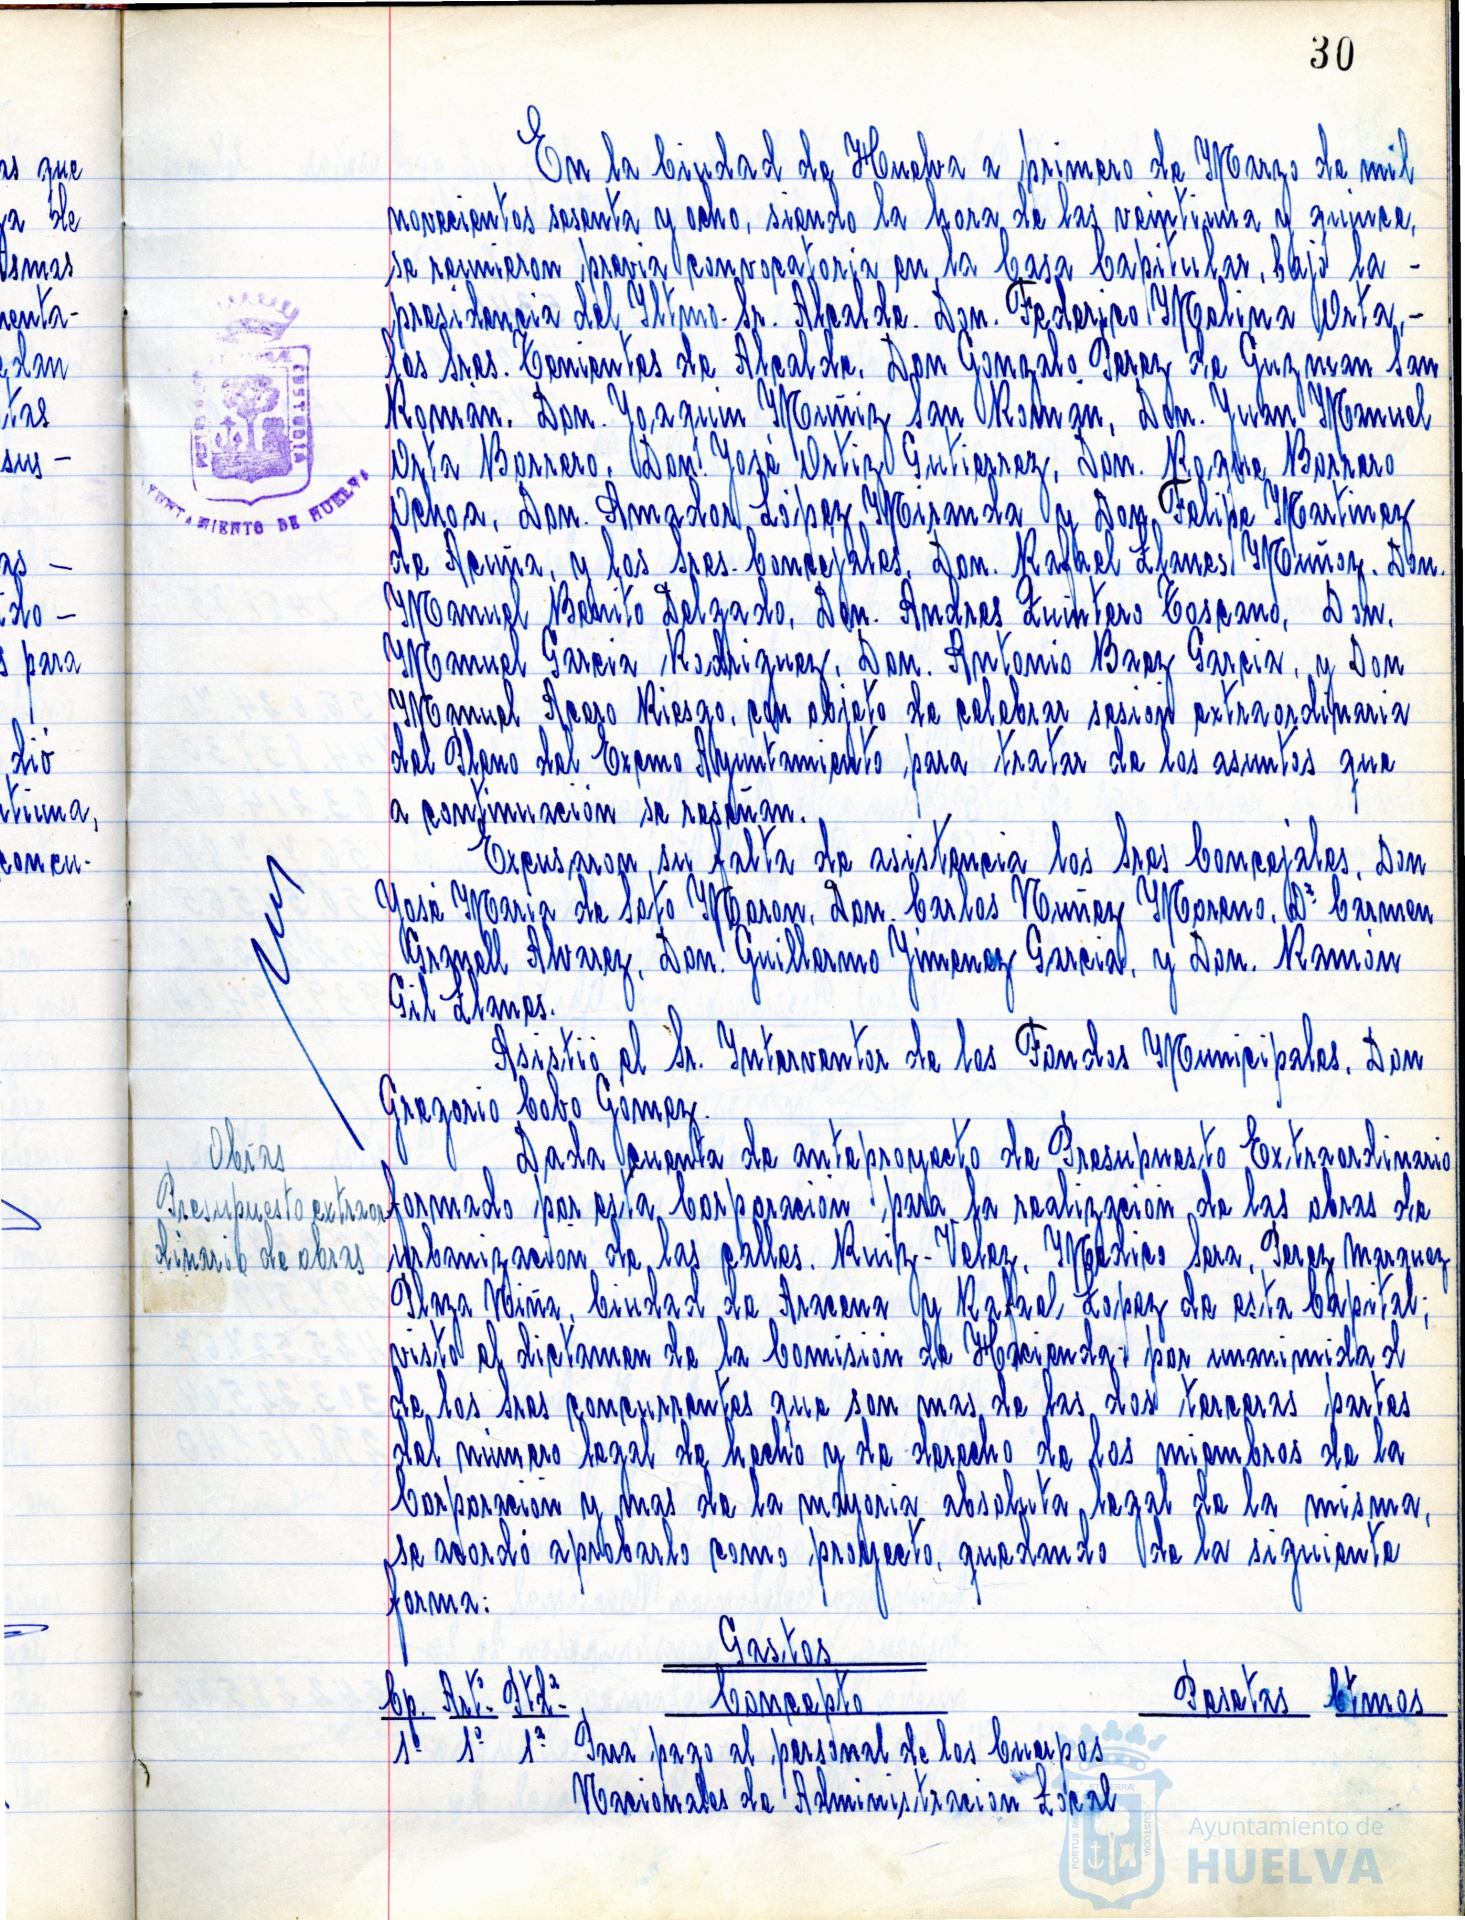 30
En la Ciudad de Huelva a primero de Marzo de mil
novecientos sesenta y ocho, siendo la hora de las veintiuna y quince,
se reunieron previa convocatoria en la Casa Capitular, bajo la -
presidencia del Iltmo. Sr. Alcalde. Don. Federico Molina Orta, -
los Sres. Tenientes de Alcalde, Don Gonzalo Perez de Guzman San
Román. Don. Joaquin Muñiz San Román, Don. Juan Manuel
Orta Borrero, Don. José Ortiz Gutierrez, Don. Roque Borrero
Ochoa, Don. Amador López Miranda y Don Felipe Martinez
de Acuña, y los Sres. Concejales, Don. Rafael Llanes Muñoz. Don.
Manuel Benito Delgado, Don. Andres Quintero Toscano, Don.
Manuel Garcia Rodriguez, Don. Antonio Baez Garcia, y Don
Manuel Acero Riesgo, con objeto de celebrar sesión extraordinaria
del Pleno del Excmo Ayuntamiento para tratar de los asuntos que
a continuación se reseñan.
Excusaron su falta de asistencia los Sres Concejales, Don
José Maria de Soto Moron, Don. Carlos Nuñez Moreno, Dª Carmen
Granell Alvarez, Don. Guillermo Jimenez Garcia, y Don. Ramón
Gil Llanes.
Asistió el Sr. Interventor de los Fondos Municipales, Don
Gregorio Cobo Gomez.
Obras
Presupuesto extraor
dinario de obras
Dada cuenta de anteproyecto de Presupuesto Extraordinario
formado por esta Corporación para la realización de las obras de
urbanización de las calles. Ruiz-Velez, Médico Sera, Perez Marquez
Plaza Niña, Ciudad de Aracena y Rafael Lopez de esta Capital;
visto el dictamen de la Comisión de Hacienda; por unanimidad
de los Sres concurrentes que son mas de las dos terceras partes
del número legal de hecho y de derecho de los miembros de la
Corporación y mas de la mayoria absoluta legal de la misma,
se acordó aprobarlo como proyecto, quedando de la siguiente
forma:
Gastos
Cp. Artº. Ptdª. Concepto Pesetas Ctmos
1º 1º 1ª Para pago al personal de los Cuerpos
Nacionales de Administracion Local
AYUNTAMIENTO DE HUELVA
Ayuntamiento de
HUELVA